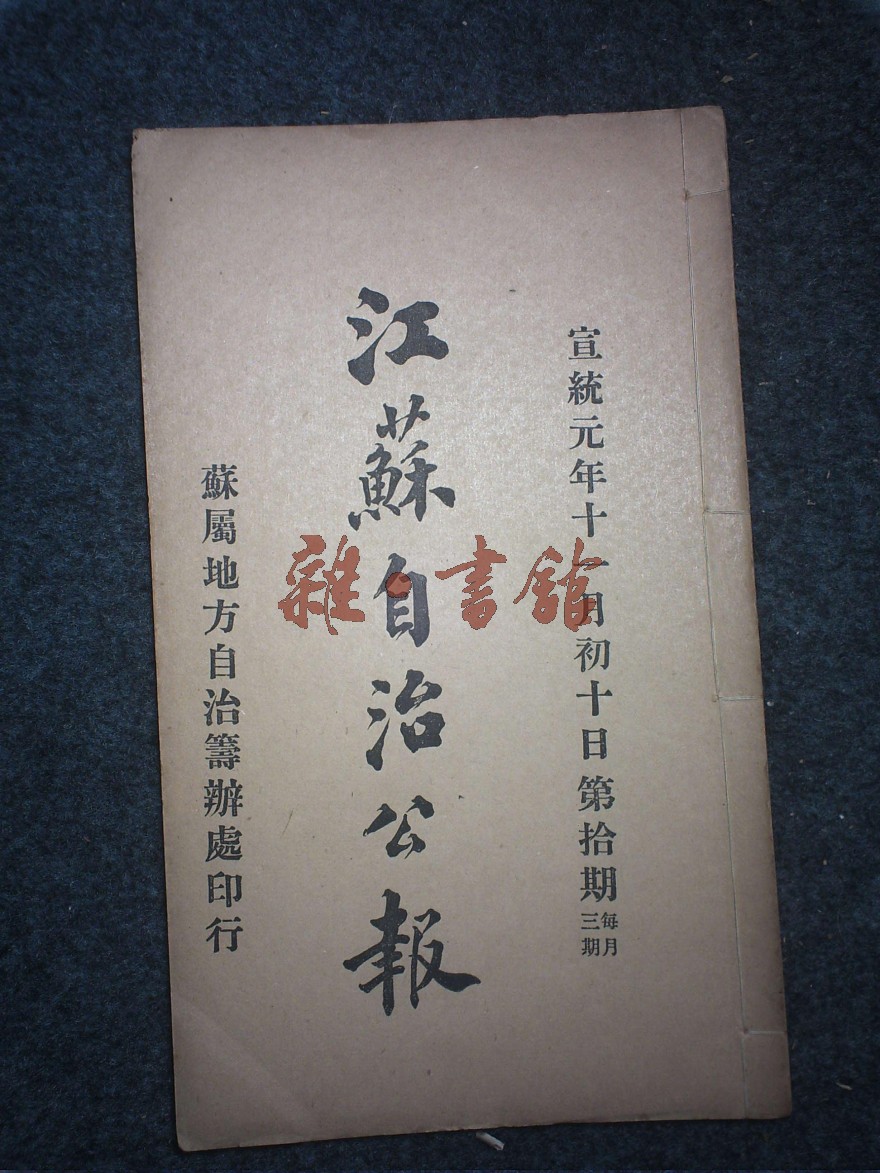 宣統元年十一月初十日第拾期
每月
三期
江蘇自治公報
蘇屬地方自治籌辦處印行
雜·書館